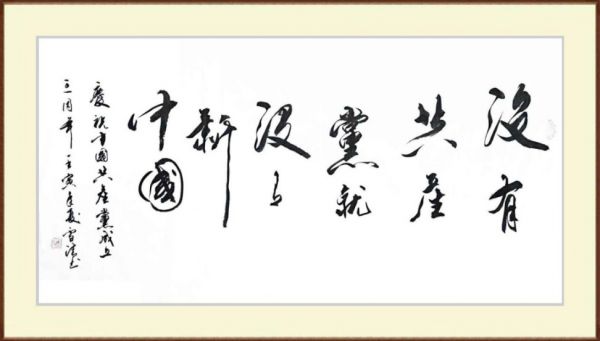 没有
共産
黨就
没有
新
中國
慶祝中國共産黨成立
周年壬寅年夏